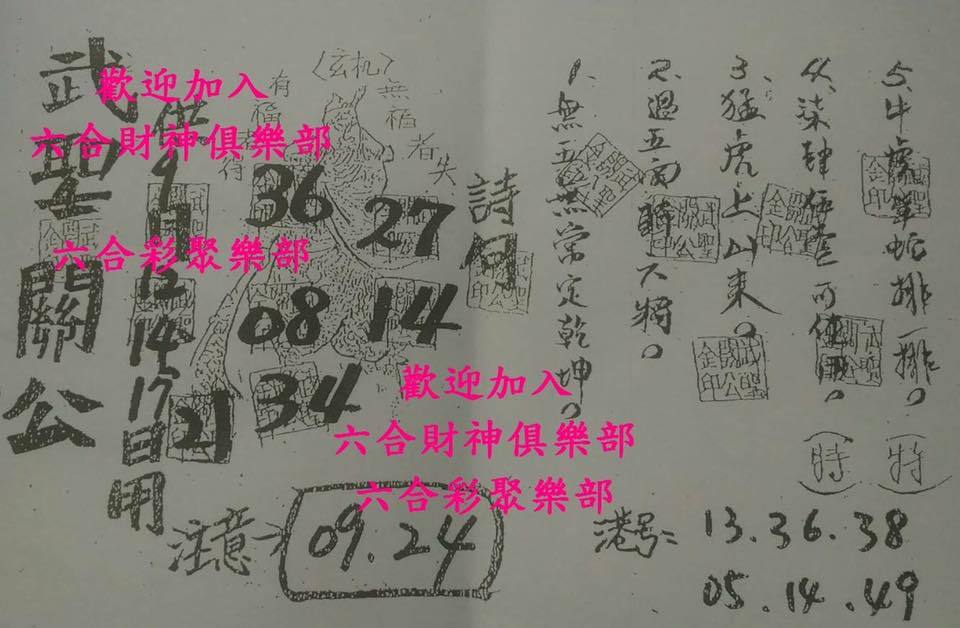 武聖關公
供9月12 14 17日用
〈玄机〉
有福者待
無福者失
36
27
08
14
34
21
詩句
1.無五無常定乾坤。
2.過五面斬六將。
3.猛虎上山來。
4.柒肆伍壹可使用。(特)
5.牛虎單蛇排一排。(特)
武聖關公金印
注意→ 09.24
港号: 13.36.38
05.14.49
歡迎加入
六合財神俱樂部
六合彩聚樂部
歡迎加入
六合財神俱樂部
六合彩聚樂部